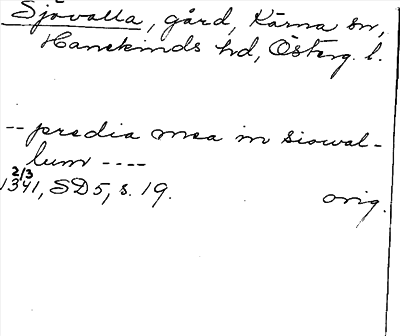 Sjövalla, gård, Kärna sn,
Hanekinds hd, Österg. l.
-- predia mea in siowal-
lum ----
2/3
1341, SD5, s. 19. orig.